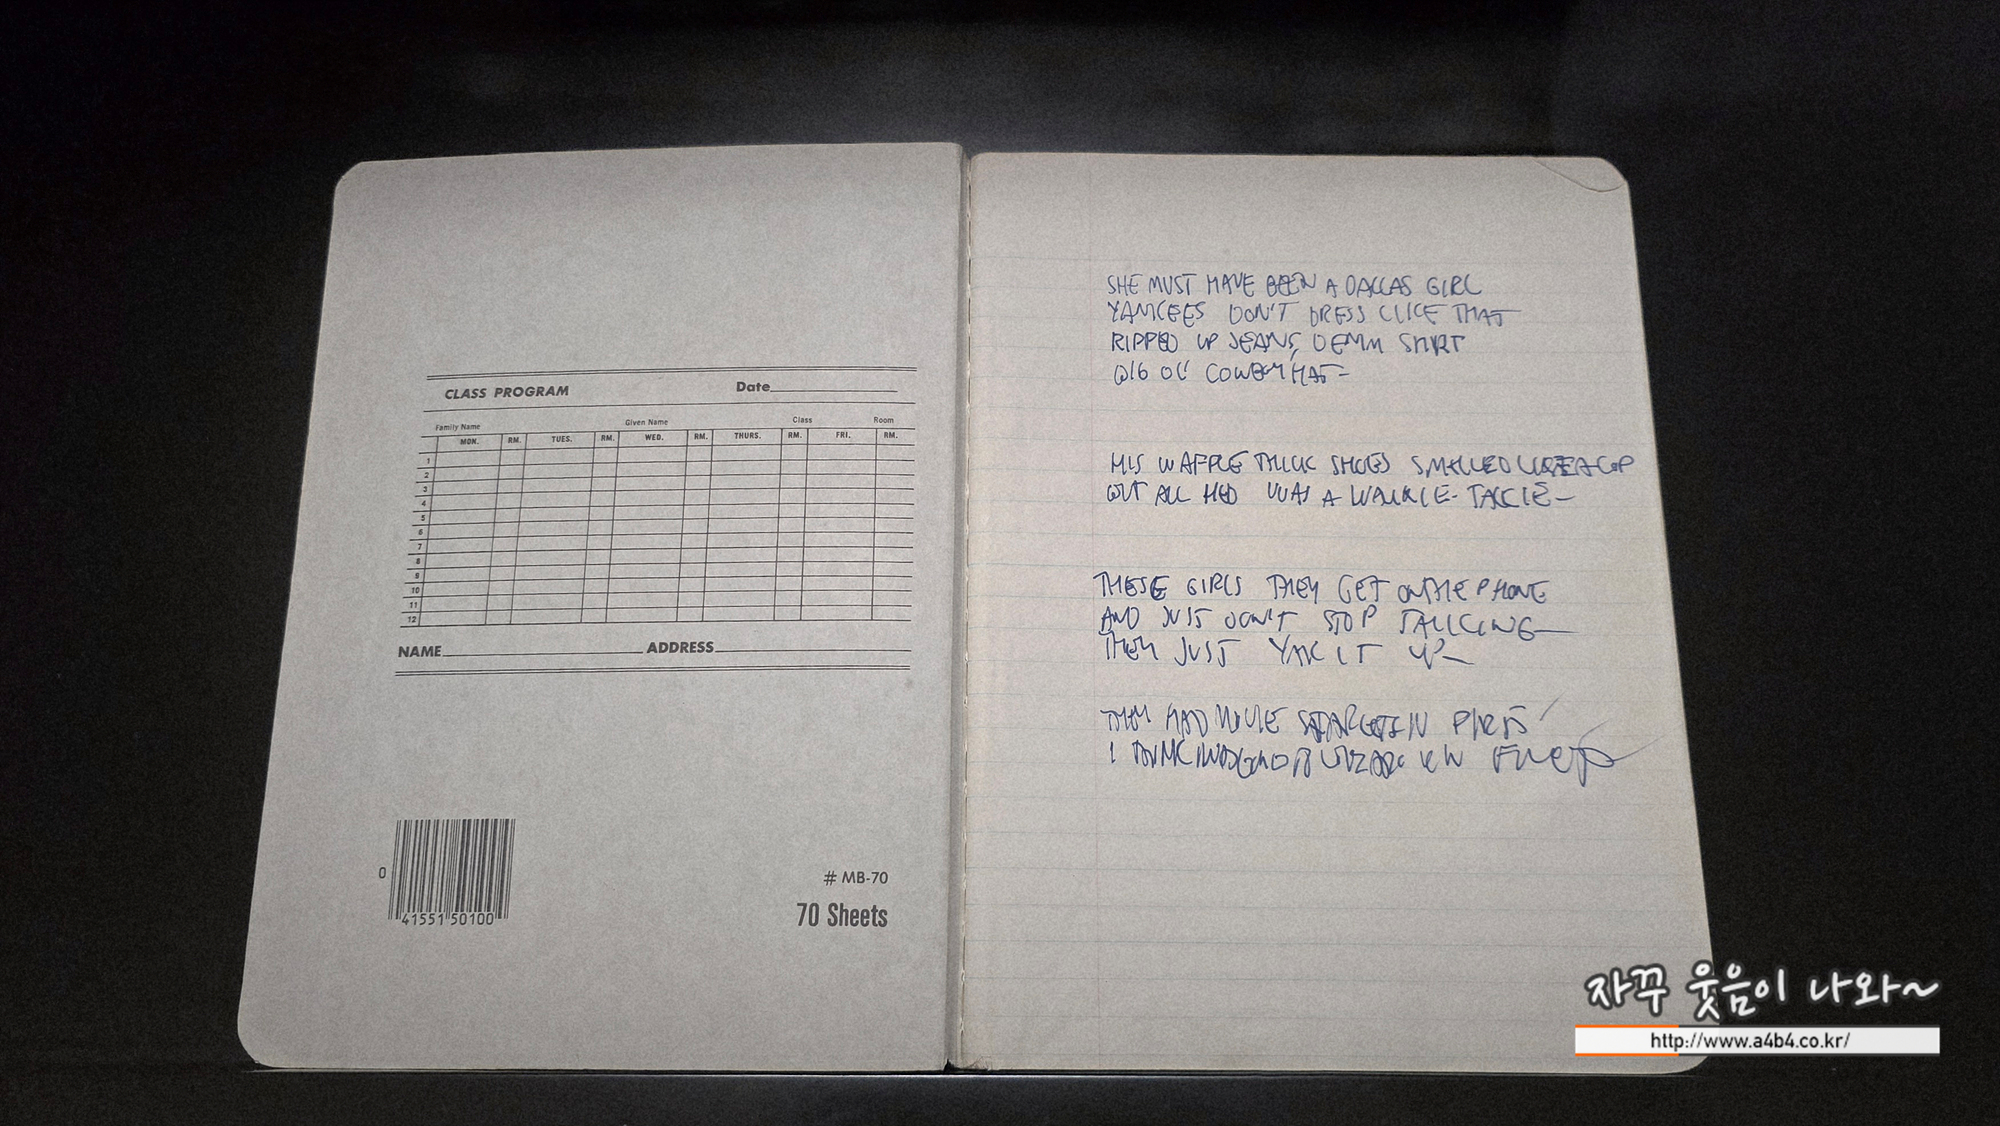 CLASS PROGRAM Date
Family Name Given Name Class Room
MON. RM. TUES. RM. WED. RM. THURS. RM. FRI. RM.
1
2
3
4
5
6
7
8
9
10
11
12
NAME ADDRESS
0 41551 50100
# MB-70
70 Sheets
SHE MUST HAVE BEEN A DALLAS GIRL
YANKEES DON'T DRESS LIKE THAT
RIPPED UP JEANS, DENIM SHIRT
BIG OL' COWBOY HAT-
HIS WAFFLE THICK SHOES SMELLED LIKE A COP
BUT ALL HED WAS A WALKIE-TALKIE-
THESE GIRLS THEY GET ON THE PHONE
AND JUST DON'T STOP TALKING-
THEY JUST YAK IT UP-
THEY HAD MOVIE STARS IN PARIS
I THINK
자꾸 웃음이 나와~
http://www.a4b4.co.kr/